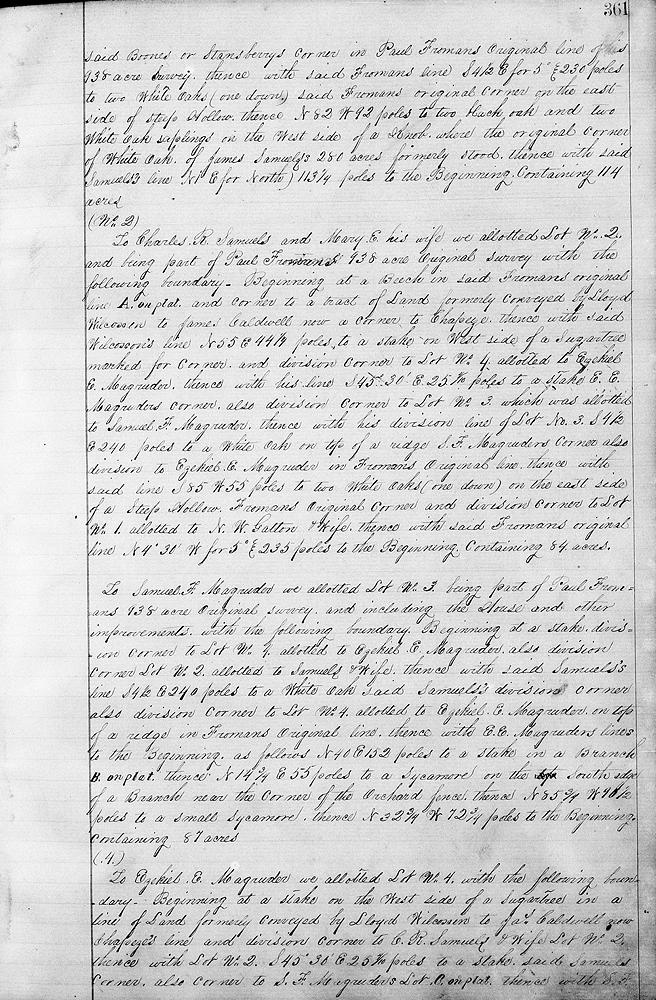 361
said Boones or Stansberrys corner in Paul Fromans Original line of his
938 acre survey. thence with said Fromans line S 4½ E for 5° E 230 poles
to two White Oaks (one down) said Fromans original corner on the east
side of steep Hollow. thence N 82 W 92 poles to two black oak and two
White Oak saplings on the West side of a Knob where the original corner
of White Oak. of James Samuels's 280 acres formerly stood. thence with said
Samuels's line N 1° E for North) 113¾ poles to the Beginning. Containing 114
acres
(No. 2)
To Charles. R. Samuels and Mary E. his wife we allotted Lot No. 2.
and being part of Paul Fromans 938 acre Original survey with the
following boundary - Beginning at a Beech in said Fromans original
line A. on plat. and corner to a tract of Land formerly conveyed by Lloyd
Wilcoxson to James Caldwell now a corner to Chapeze. thence with said
Wilcoxson's line N 55 E 44¼ poles to a stake on West side of a Sugartree
marked for corner. and division corner to Lot No. 4. allotted to Ezekiel
E. Magruder. thence with his line S 45° 30' E. 25 poles to a stake E. E.
Magruders corner. also division corner to Lot No. 3. which was allotted
to Samuel F. Magruder. thence with his division line of Lot No. 3. S 4½
E 240 poles to a White Oak on top of a ridge S. F. Magruders corner also
division to Ezekiel. E. Magruder in Fromans Original line. thence with
said line S 85 W 55 poles to two White Oaks (one down) on the east side
of a Steep Hollow. Fromans Original Corner and division corner to Lot
No. 1. allotted to N. W. Gatton & Wife. thence with said Fromans original
line N 4° 30' W for 5° E 235 poles to the Beginning. Containing 84 acres.
To Samuel. F. Magruder we allotted Lot No. 3. being part of Paul From=
ans 938 acre Original survey. and including the House and other
improvements. with the following boundary. Beginning at a stake. divis-
-ion corner to Lot No. 4. allotted to Ezekiel E. Magruder. also division
corner Lot No. 2. allotted to Samuels & Wife. thence with said Samuels's
line S 4½ E 240 poles to a White Oak said Samuels's division corner
also division corner to Lot No. 4. allotted to Ezekiel. E. Magruder. on top
of a ridge in Fromans Original line. thence with E. E. Magruders lines
to the Beginning. as follows N 40 E 152 poles to a stake in a Branch
B. on plat. thence N 14¾ E 55 poles to a Sycamore on the South edge
of a Branch near the Corner of the Orchard fence. thence N 85¾ W 70½
poles to a small sycamore. thence N 32¾ W 72¾ poles to the Beginning.
Containing 87 acres
(.4.)
To Ezekiel. E. Magruder we allotted Lot No. 4. with the following boun-
-dary - Beginning at a stake on the West side of a Sugartree in a
line of Land formerly conveyed by Lloyd Wilcoxson to Jas. Caldwell now
Chapeze's line and division corner to C. R. Samuels & Wife Lot No. 2.
thence with Lot No. 2. S 45° 30' E 25 poles to a stake. said Samuels
Corner. also corner to S. F. Magruders Lot C. on plat. thence with S. F.